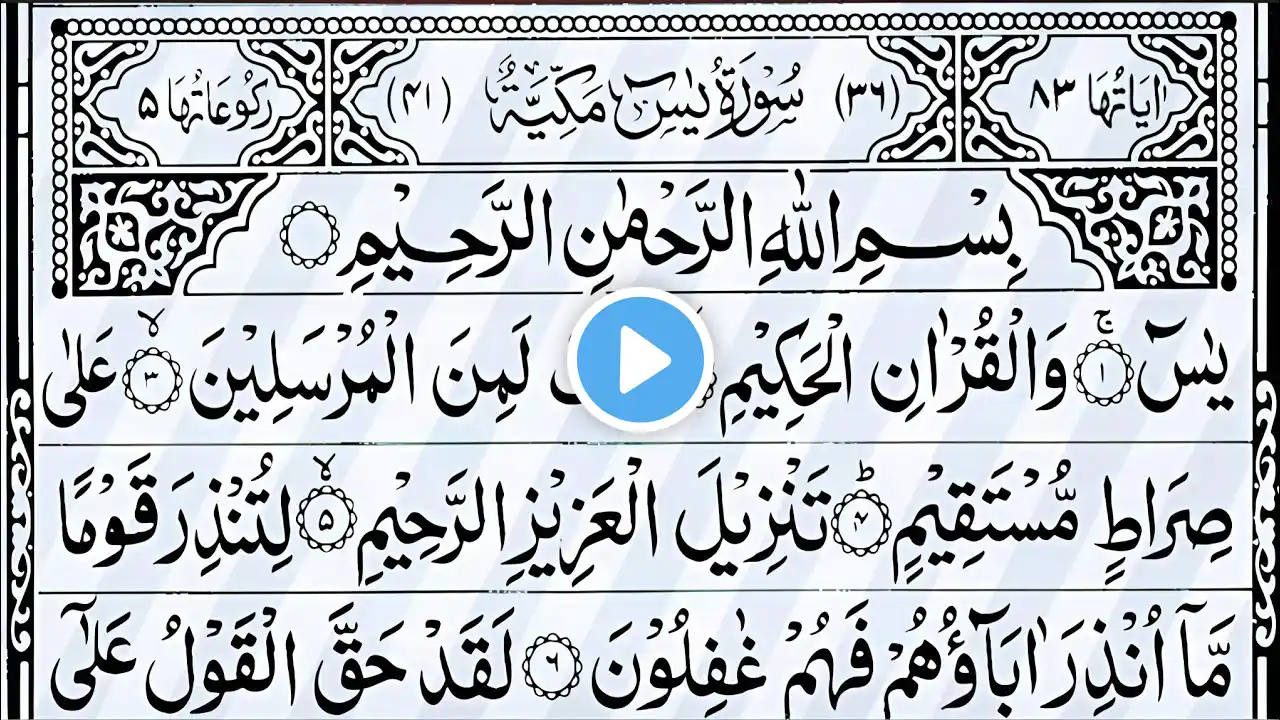 اٰيَاتُهَا ٨٣ (٣٦) سُوْرَةُ يٰسٓ مَكِّيَّةٌ (٤١) رُكُوْعَاتُهَا ٥
بِسْمِ اللّٰهِ الرَّحْمٰنِ الرَّحِيْمِ
يٰسٓ ۚ ﴿١﴾ وَالْقُرْاٰنِ الْحَكِيْمِ لَمِنَ الْمُرْسَلِيْنَ ۙ ﴿٣﴾ عَلٰى
صِرَاطٍ مُّسْتَقِيْمٍ ؕ ﴿۴﴾ تَنْزِيْلَ الْعَزِيْزِ الرَّحِيْمِ ۙ ﴿۵﴾ لِتُنْذِرَ قَوْمًا
مَّاۤ اُنْذِرَ اٰبَآؤُهُمْ فَهُمْ غٰفِلُوْنَ ﴿۶﴾ لَقَدْ حَقَّ الْقَوْلُ عَلٰۤى